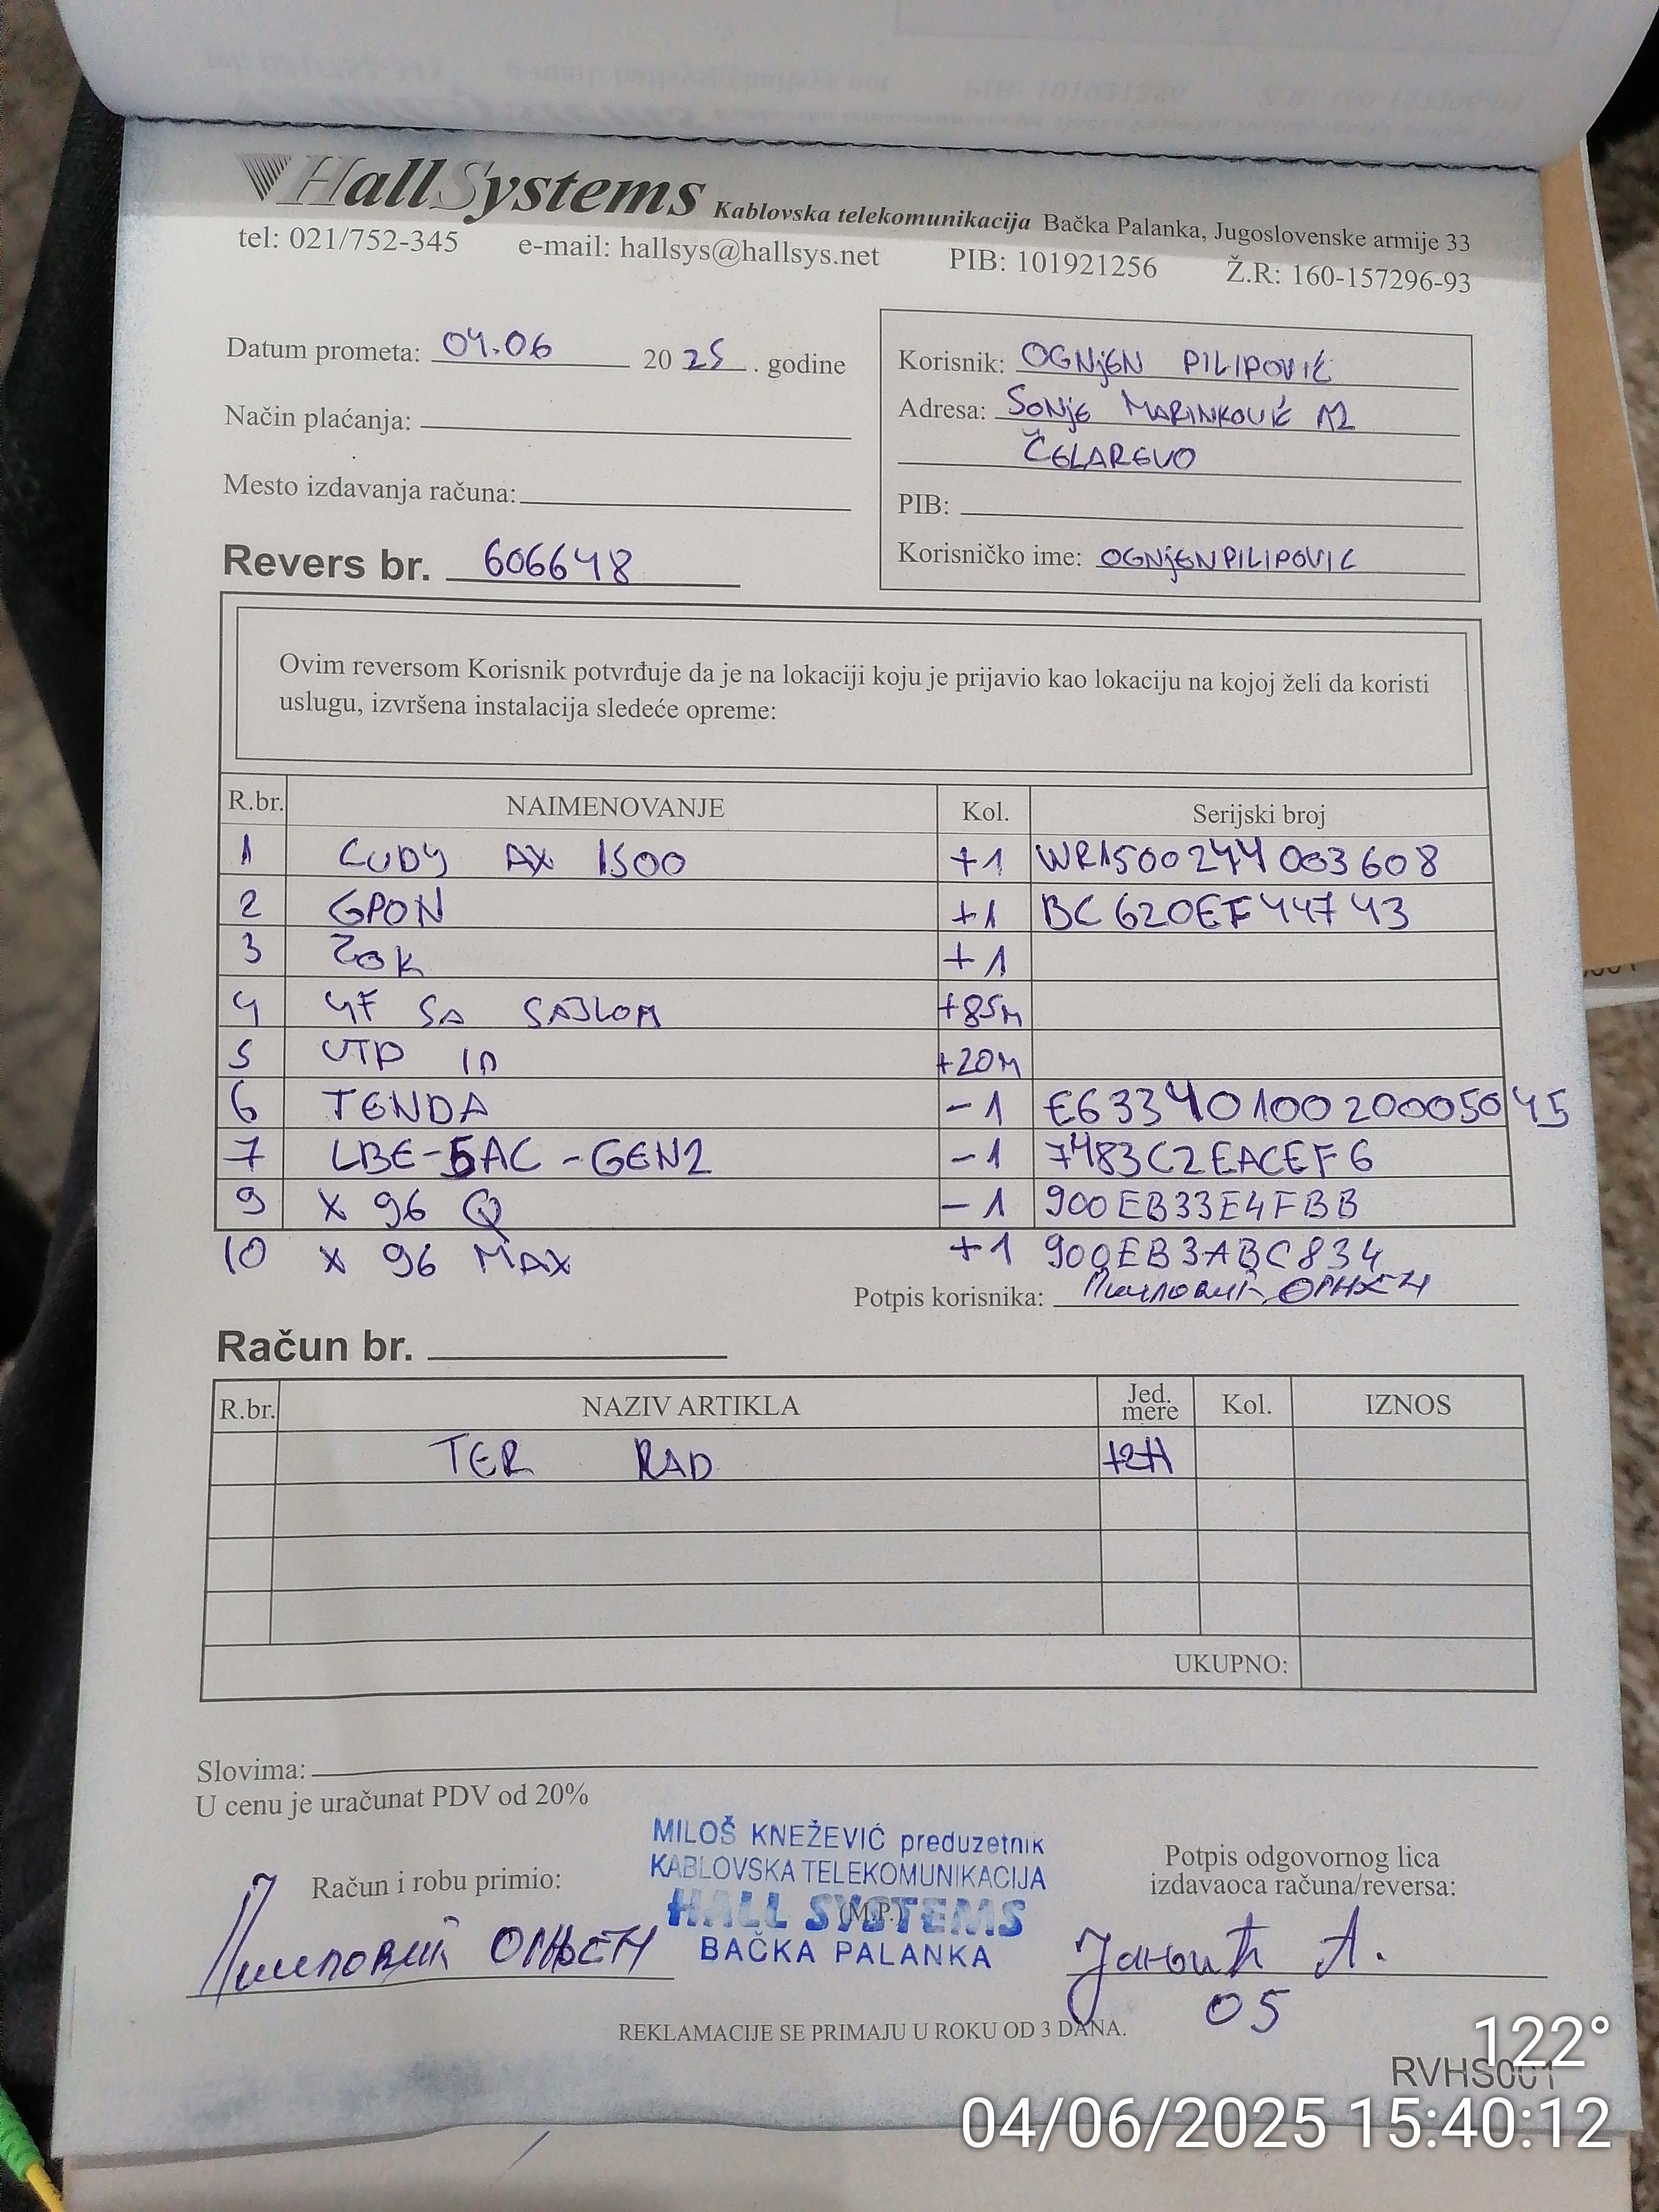 HallSystems Kablovska telekomunikacija Bačka Palanka, Jugoslovenske armije 33
tel: 021/752-345 e-mail: hallsys@hallsys.net PIB: 101921256 Ž.R: 160-157296-93
Datum prometa: 04.06 2025. godine
Način plaćanja:
Mesto izdavanja računa:
Korisnik: OGNjEN PILIPOVIĆ
Adresa: SONjE MARINKOVIĆ
ČELAREVO
PIB:
Korisničko ime: OGNjENPILIPOVIC
Revers br. 606648
Ovim reversom Korisnik potvrđuje da je na lokaciji koju je prijavio kao lokaciju na kojoj želi da koristi
uslugu, izvršena instalacija sledeće opreme:
R.br. NAIMENOVANJE Kol. Serijski broj
1 CUDY AX 1500 +1 WR1500244003608
2 GPON +1 BC620EF44743
3 ZOK +1
4 4F SA SAJLOM +85M
5 UTP IN +20M
6 TENDA -1 E6334010020005045
7 LBE-5AC-GEN2 -1 7483C2EACEF6
9 X 96 Q -1 900EB33E4FBB
10 X 96 MAX +1 900EB3ABC834
Potpis korisnika: Пилиповић ОГЊЕН
Račun br.
R.br. NAZIV ARTIKLA Jed. mere Kol. IZNOS
TER RAD +2H
UKUPNO:
Slovima:
U cenu je uračunat PDV od 20%
MILOŠ KNEŽEVIĆ preduzetnik
KABLOVSKA TELEKOMUNIKACIJA
HALL SYSTEMS
(M.P.)
BAČKA PALANKA
Račun i robu primio:
Пилиповић ОГЊЕН
Potpis odgovornog lica
izdavaoca računa/reversa:
Јанчић А.
05
REKLAMACIJE SE PRIMAJU U ROKU OD 3 DANA.
RVHS001
122°
04/06/2025 15:40:12